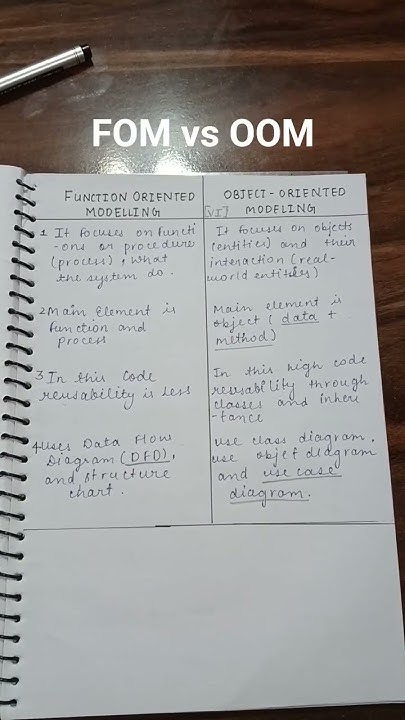 FOM vs OOM
FUNCTION ORIENTED
MODELLING
OBJECT-ORIENTED
[VI] MODELING
1 It focuses on functi
-ons or procedure
(process), what
the system do.
It focuses on objects
(entities) and their
interaction (real-
world entities)
2 Main Element is
function and
process
Main element is
object (data +
method)
3 In this code
reusability is less
In this high code
reusability through
classes and inheri
-tance
4 uses Data Flow
Diagram (DFD),
and structure
chart.
use class diagram.
use objet diagram
and use case
diagram.